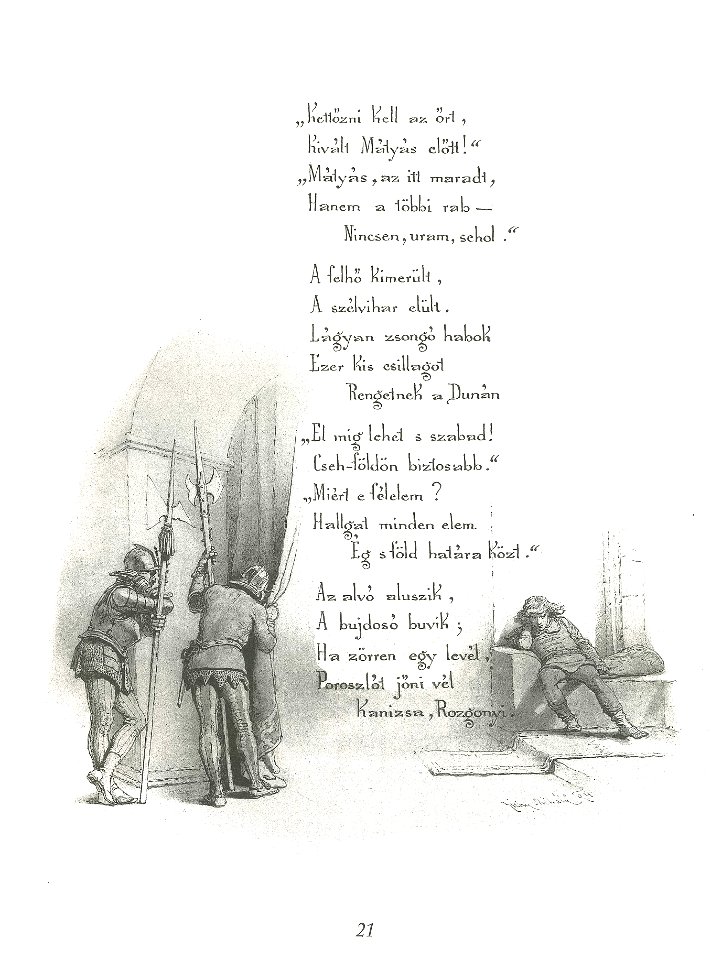 „Kettőzni kell az őrt,
Kivált Mátyás előtt!“
„Mátyás, az itt maradt,
Hanem a többi rab —
Nincsen, uram, sehol.“
A felhő kimerült,
A szélvihar elült.
Lágyan zsongó habok
Ezer kis csillagot
Rengetnek a Dunán
„El míg lehet s szabad!
Cseh-földön biztosabb.“
„Miért e félelem?
Hallgat minden elem.
Ég s föld határa közt.“
Az alvó aluszik,
A bujdosó buvik;
Ha zörren egy levél,
Poroszlót jőni vél
Kanizsa, Rozgonyi.
21